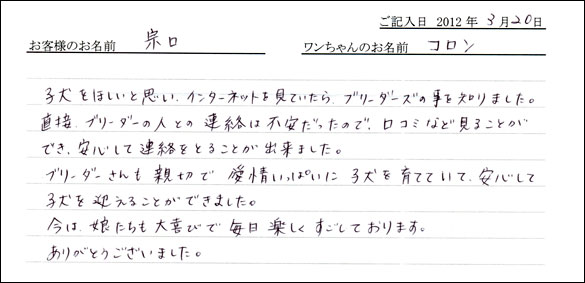 ご記入日 2012年 3月20日
お客様のお名前 宗口 ワンちゃんのお名前 コロン
子犬をほしいと思い、インターネットを見ていたら、ブリーダーズの事を知りました。
直接、ブリーダーの人との連絡は不安だったので、口コミなど見ることが
でき、安心して連絡をとることが出来ました。
ブリーダーさんも親切で愛情いっぱいに子犬を育てていて、安心して
子犬を迎えることができました。
今は、娘たちも大喜びで毎日楽しくすごしております。
ありがとうございました。